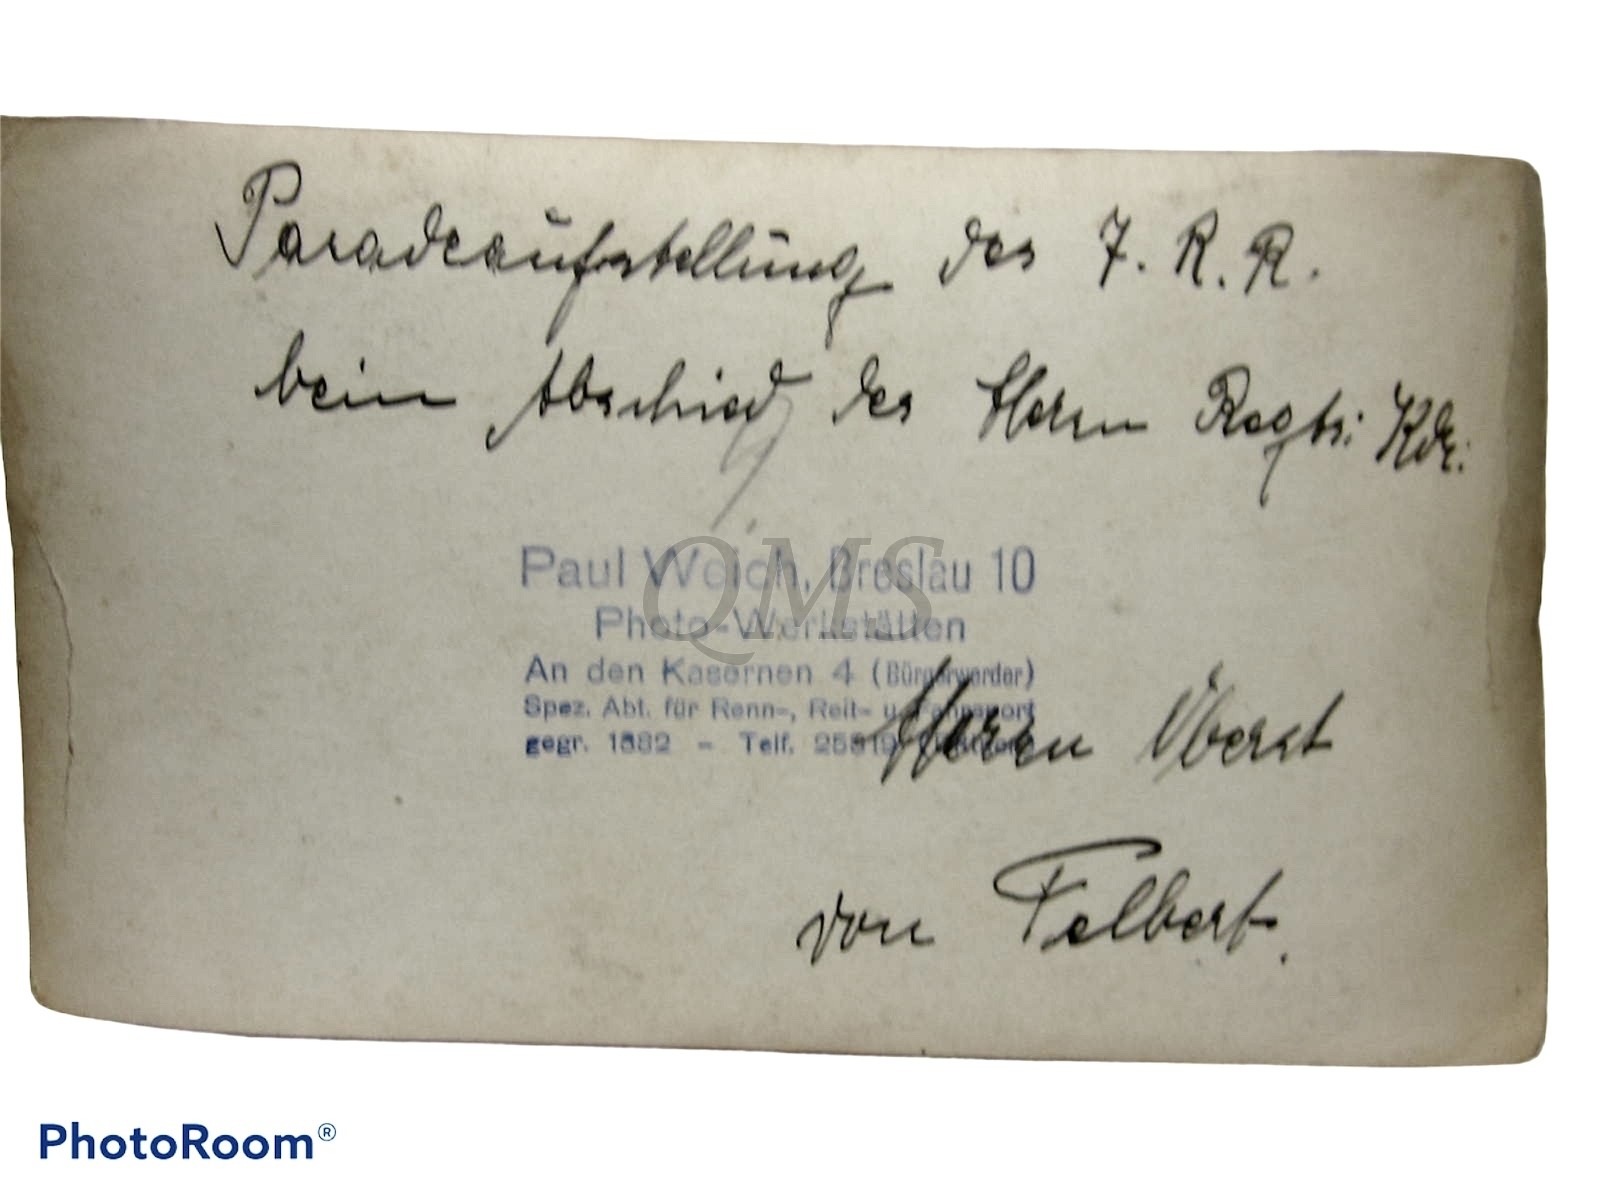 Paradeaufstellung des 7. R. R.
beim Abschied des Herrn Regts. Kdr.
Paul Weich, Breslau 10
QMS
Photo-Werkstätten
An den Kasernen 4 (Bürgerwerder)
Spez. Abt. für Renn-, Reit- u. Fahrsport
gegr. 1882 - Telf.
Herrn Oberst
von Felbert.
PhotoRoom®